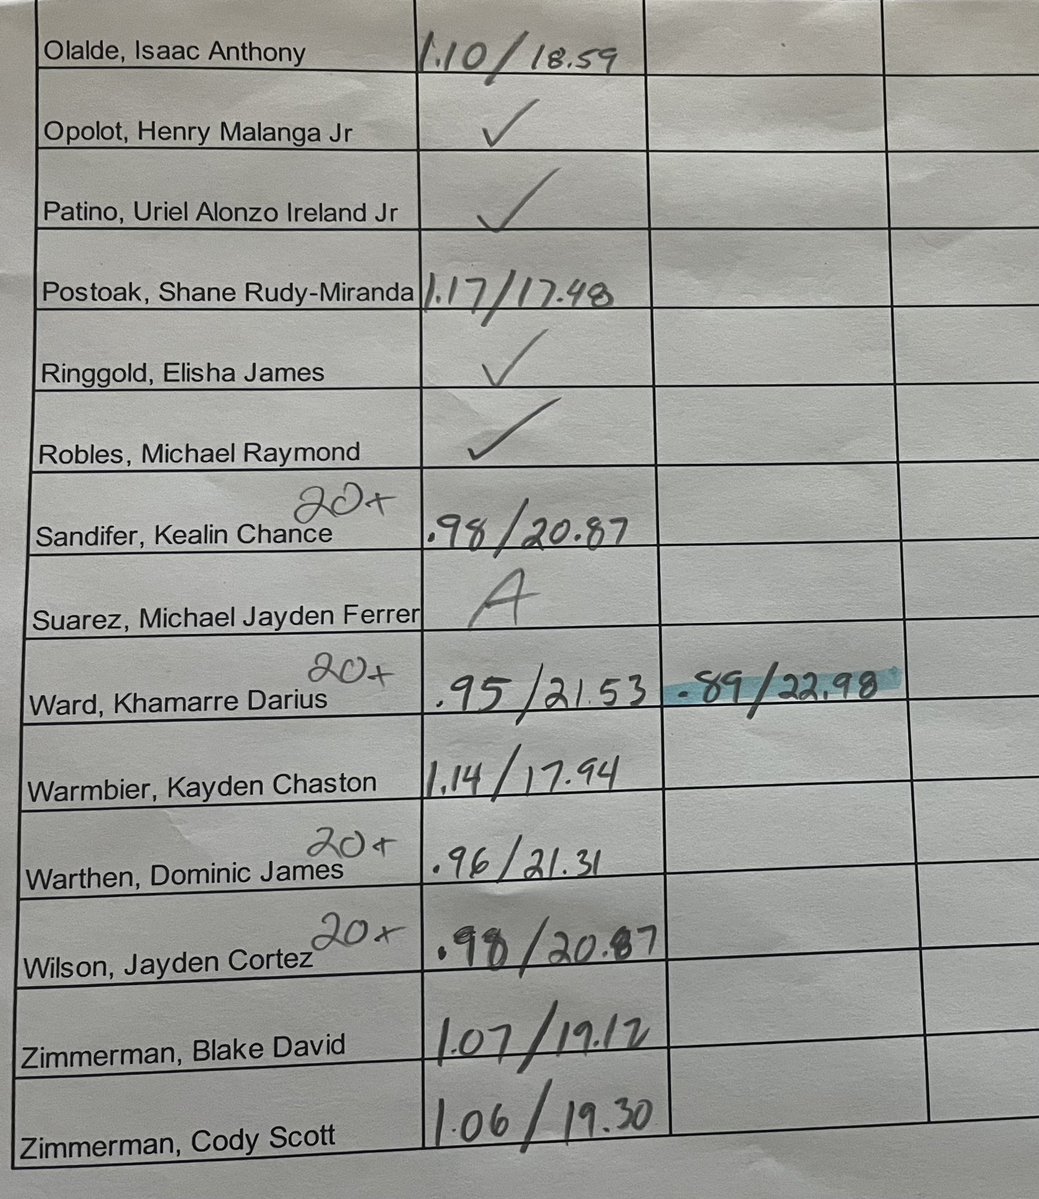 Olalde, Isaac Anthony 1.10/18.59
Opolot, Henry Malanga Jr ✓
Patino, Uriel Alonzo Ireland Jr ✓
Postoak, Shane Rudy-Miranda 1.17/17.48
Ringgold, Elisha James ✓
Robles, Michael Raymond ✓
20+
Sandifer, Kealin Chance .98/20.87
Suarez, Michael Jayden Ferrer A
20+
Ward, Khamarre Darius .95/21.53 .89/22.98
Warmbier, Kayden Chaston 1.14/17.94
20+
Warthen, Dominic James .96/21.31
20+
Wilson, Jayden Cortez .98/20.87
Zimmerman, Blake David 1.07/19.12
Zimmerman, Cody Scott 1.06/19.30